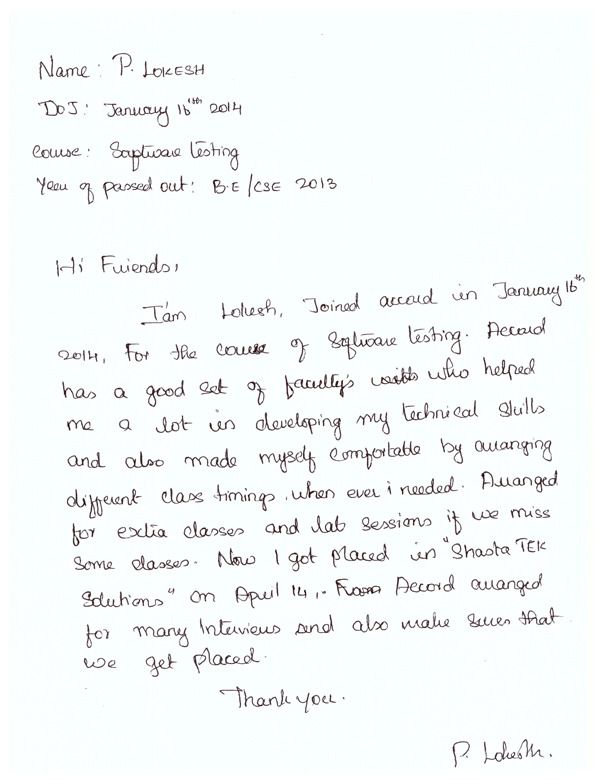 Name: P. LOKESH
DOJ: January 16th 2014
Course: Software Testing
Year of passed out: B.E/CSE 2013
Hi Friends,
I'am Lokesh, Joined accord in January 16th
2014, For the course of Software Testing. Accord
has a good set of faculty's who helped
me a lot in developing my technical skills
and also made myself comfortable by arranging
different class timings when ever i needed. Arranged
for extra classes and lab sessions if we miss
some classes. Now I got placed in "Shasta TEK
Solutions" on April 14,. Accord arranged
for many Interviews and also make sures that
we get placed.
Thank you.
P. Lokesh.